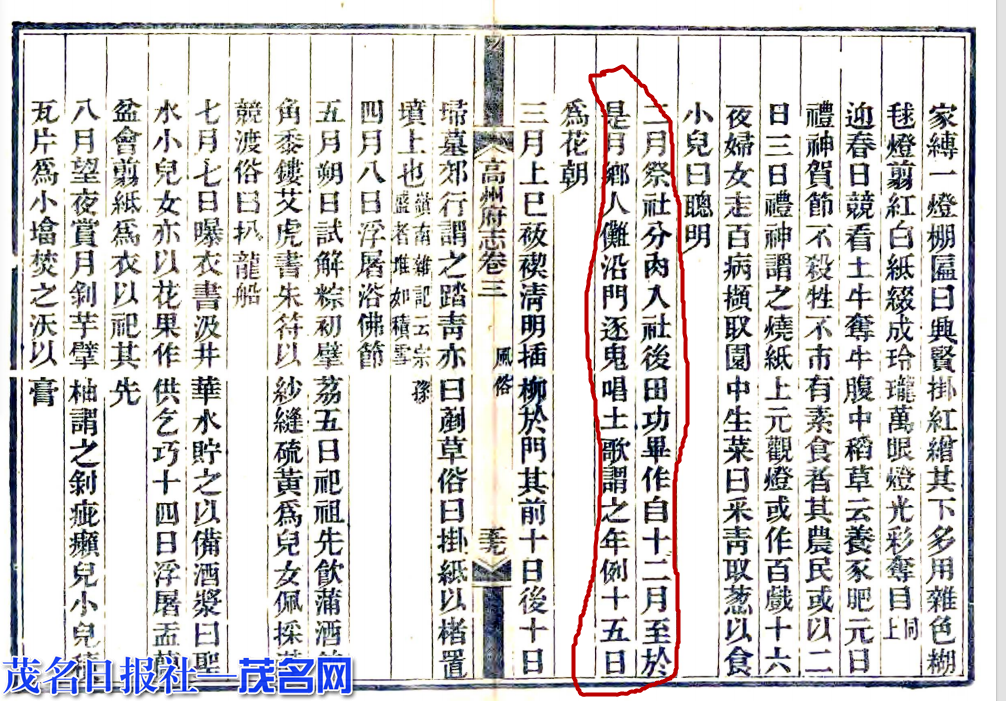 家縛一燈棚匾曰興賢掛紅繒其下多用雜色糊
毬燈剪紅白紙綴成玲瓏萬眼燈光彩奪目同上
迎春日競看土牛奪牛腹中稻草云養豕肥元日
禮神賀節不殺牲不市有素食者其農民或以二
日三日禮神謂之燒紙上元觀燈或作百戲十六
夜婦女走百病擷取園中生菜曰采青取葱以食
小兒曰聰明
二月祭社分肉入社後田功畢作自十二月至於
是月鄉人儺沿門逐鬼唱土歌謂之年例十五日
為花朝
三月上巳祓禊清明插柳於門其前十日後十日
高州府志卷三
風俗
埽墓郊行謂之踏青亦曰剷草俗曰掛紙以楮置
墳上也嶺南雜記云宗孫盛者堆如積雪
四月八日浮屠浴佛節
五月朔日試解粽初擘荔五日祀祖先飲蒲酒
角黍鏤艾虎書朱符以紗縫硫黃為兒女佩採
競渡俗曰扒龍船
七月七日曝衣書汲井華水貯之以備酒漿曰聖
水小兒女亦以花果作供乞巧十四日浮屠盂蘭
盆會剪紙為衣以祀其先
八月望夜賞月剝芋擘柚謂之剝疵癩兒小兒積
瓦片為小塔焚之沃以膏
茂名日报社—茂名网